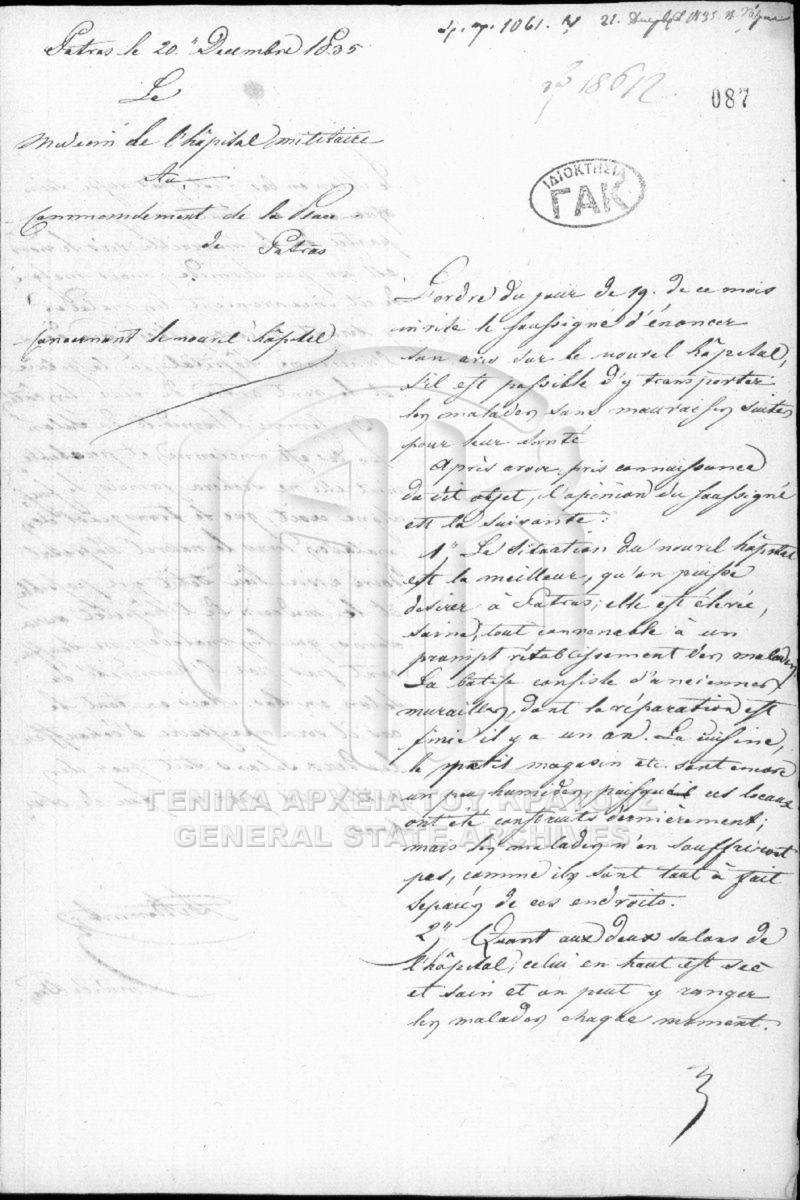 Patras le 20. Decembre 1835
1061. 21. 1835
18612
087
Le
Medecin de l'hôpital militaire
Au
Commendement de la Place
de Patras
Concernant le nouvel hôpital
ΙΔΙΟΚΤΗΣΙΑ
ΓΑΚ
L'ordre du jour de 19. de ce mois
invite le soussigné d'énoncer
son avis sur le nouvel hôpital,
s'il est possible d'y transporter
les malades sans mauvaises suites
pour leur santé
Après avoir pris connaissance
du dit objet, l'opinion du soussigné
est la suivante:
1., La situation du nouvel hôpital
est la meilleur, qu'on puisse
desirer à Patras; elle est élevée,
saine, tout convenable à un
prompt rétablissement des malades
La batise consiste d'anciennes
murailles, dont la réparation est
finie il y a un an. La cuisine,
le petit magasin etc. sont encore
un peu humides, puisque ces locaux
ont été construits dernièrement;
mais les malades n'en souffriront
pas, comme ils sont tout à fait
separés de ces endroits.
2., Quant aux deux salons de
l'hôpital, celui en haut est sec
et sain et on peut y ranger
les malades chaque moment.
ΓΕΝΙΚΑ ΑΡΧΕΙΑ ΤΟΥ ΚΡΑΤΟΥΣ
GENERAL STATE ARCHIVES